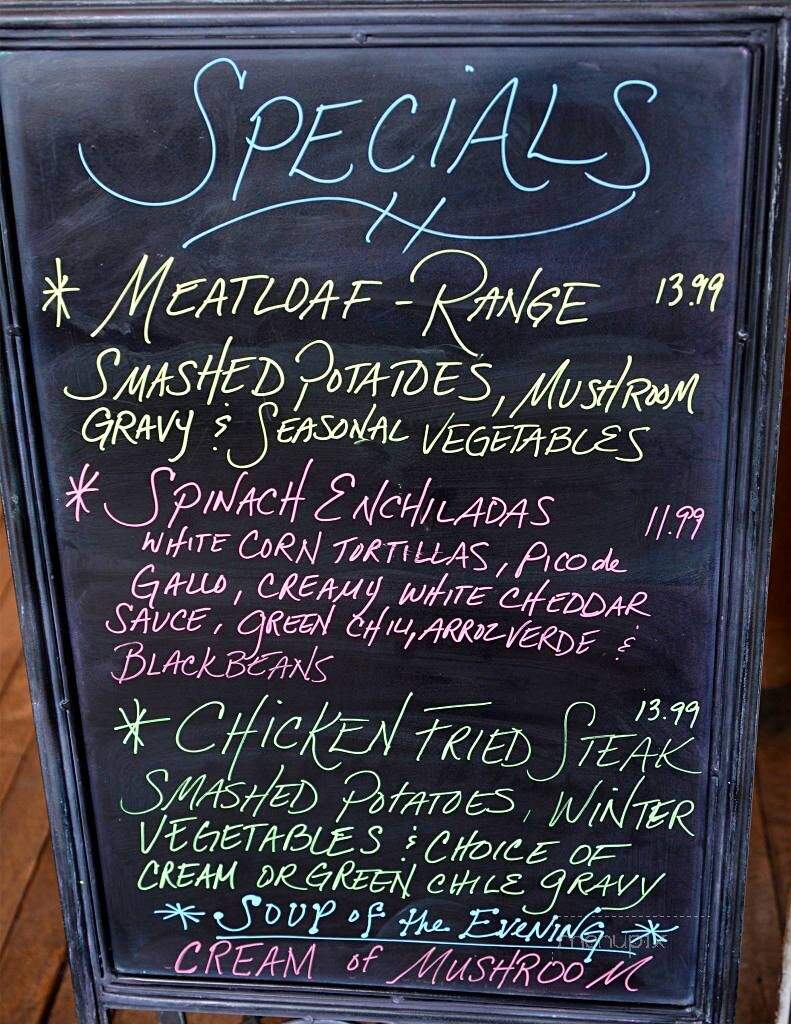 SPECIALS
* MEATLOAF - RANGE 13.99
SMASHED POTATOES, MUSHROOM
GRAVY & SEASONAL VEGETABLES
* SPINACH ENCHILADAS 11.99
WHITE CORN TORTILLAS, PICO de
GALLO, CREAMY WHITE CHEDDAR
SAUCE, GREEN CHILI, ARROZ VERDE &
BLACK BEANS
* CHICKEN FRIED STEAK 13.99
SMASHED POTATOES, WINTER
VEGETABLES & CHOICE OF
CREAM OR GREEN CHILE GRAVY
* SOUP of the EVENING *
menupix
CREAM of MUSHROOM